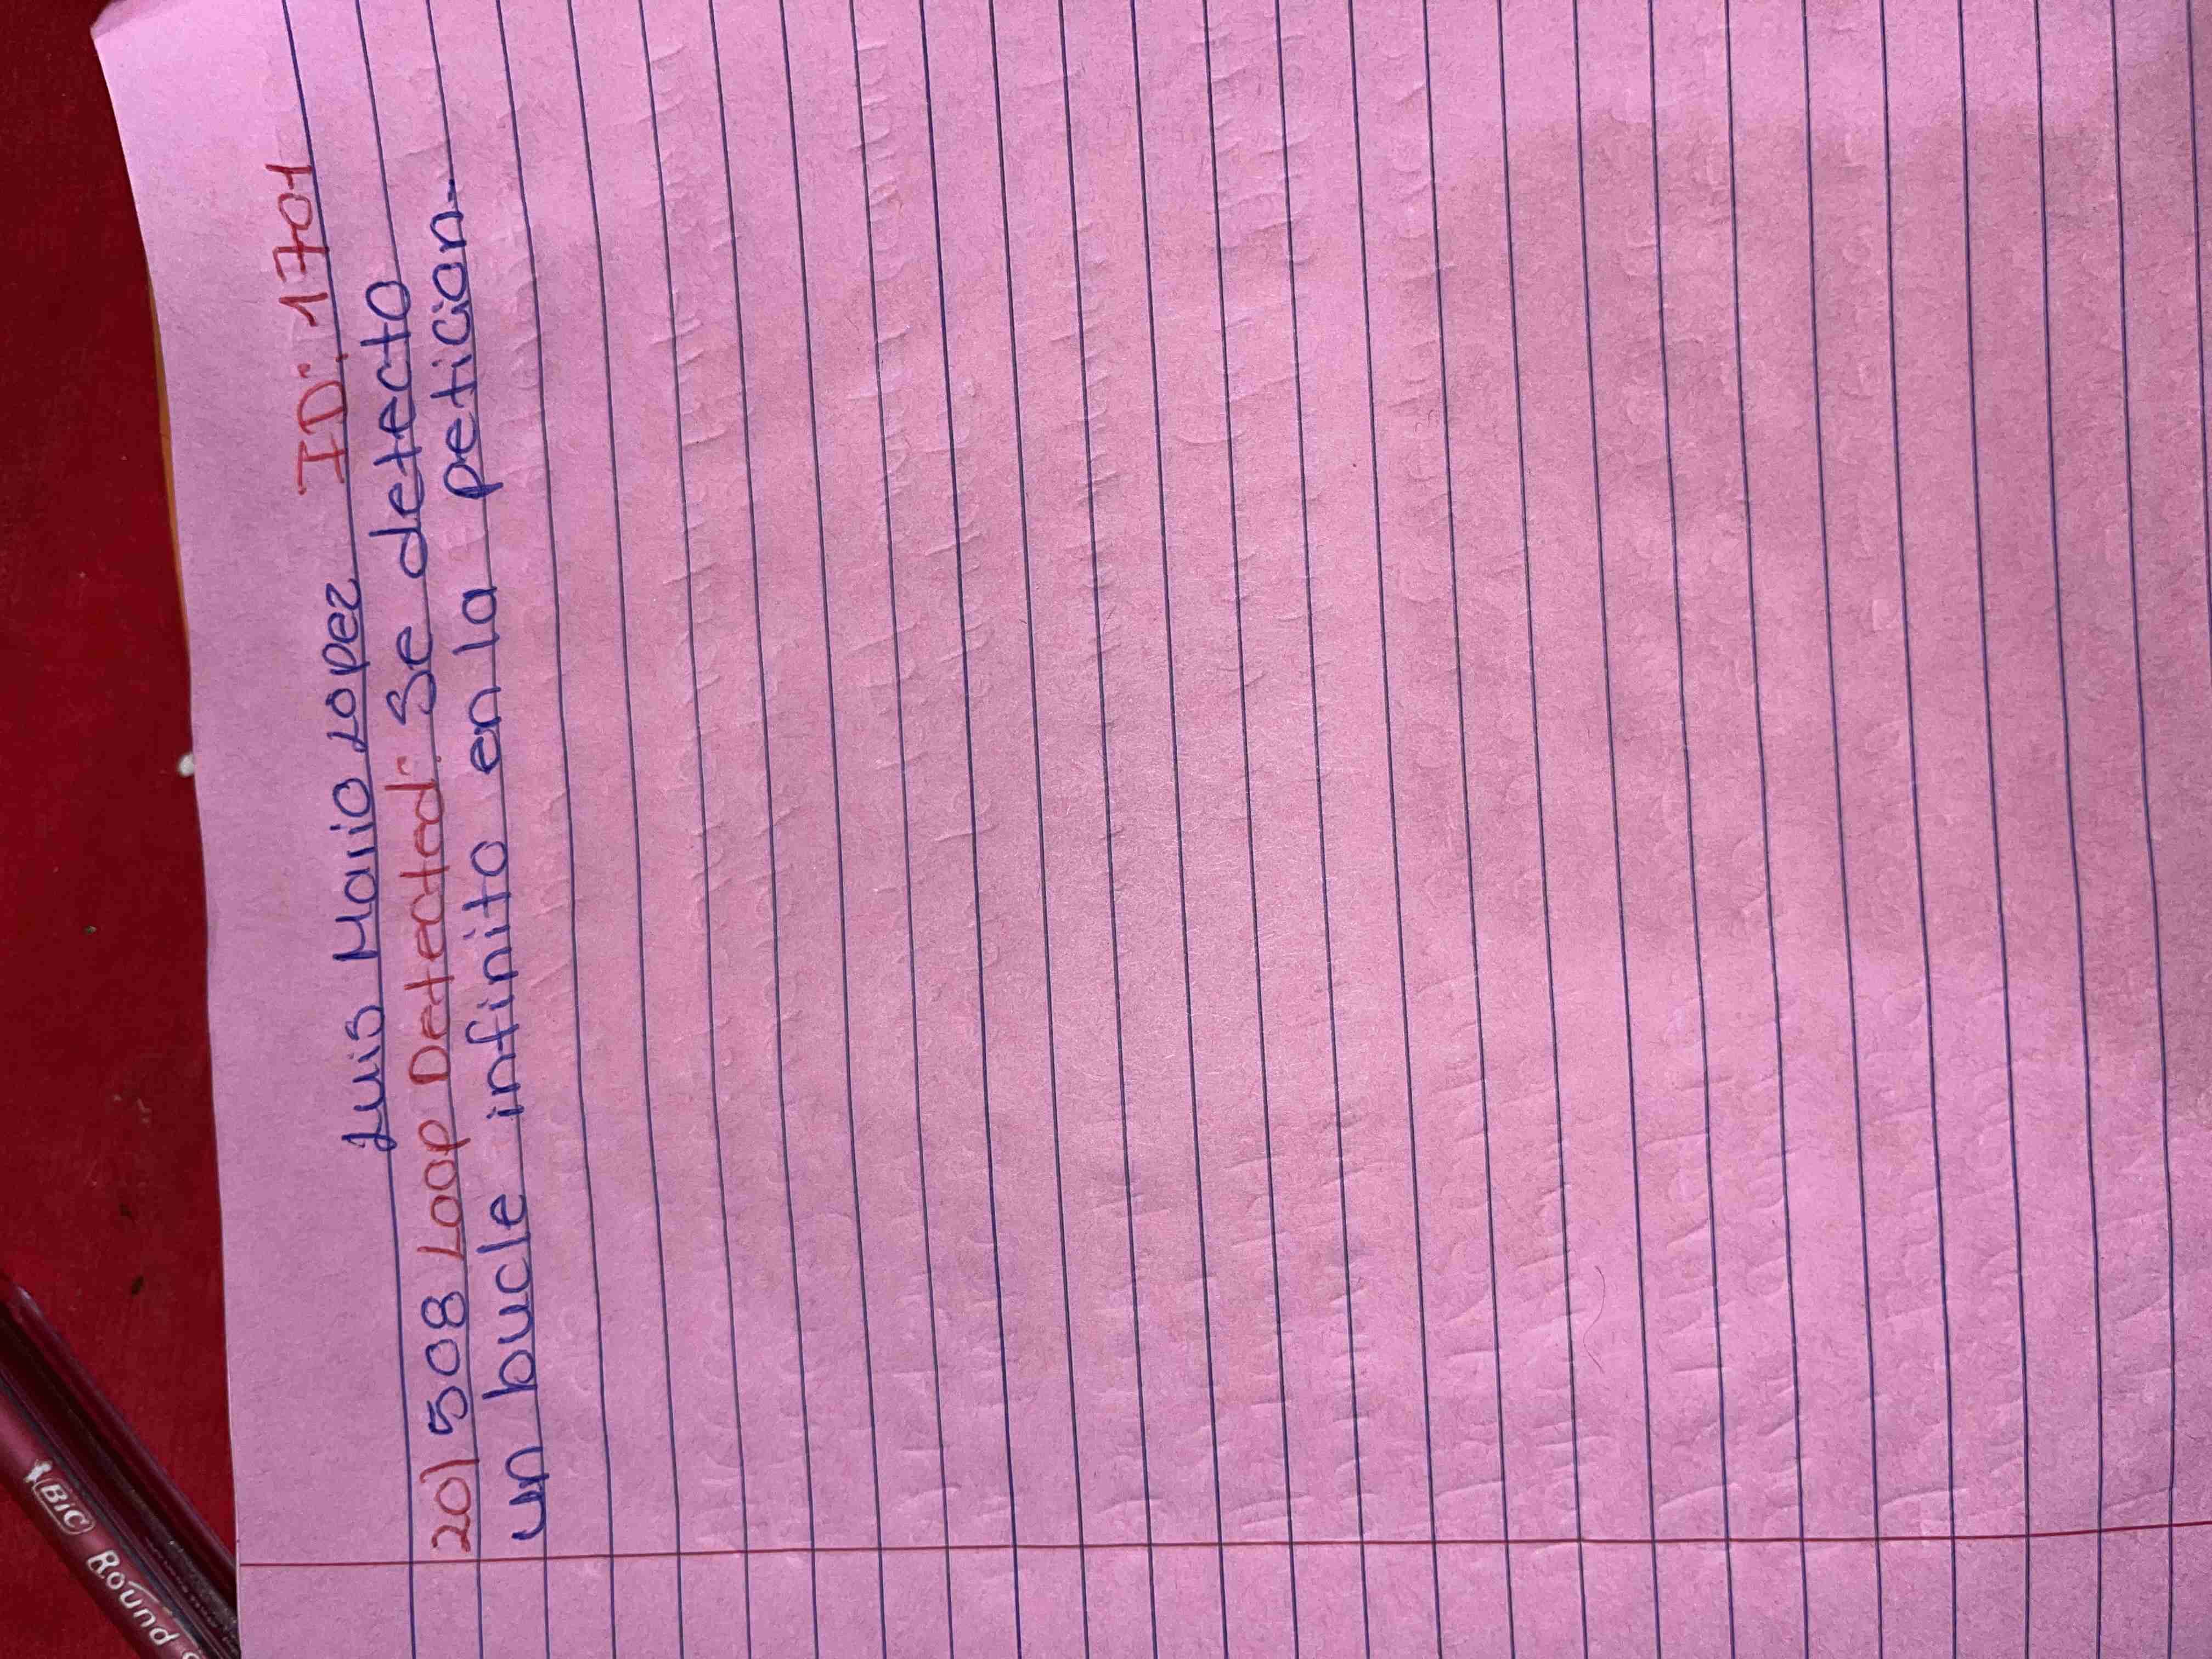 Luis Mario Lopez ID: 1701
20) 508 Loop Detected: Se detecto
un bucle infinito en la peticion.
BIC Round